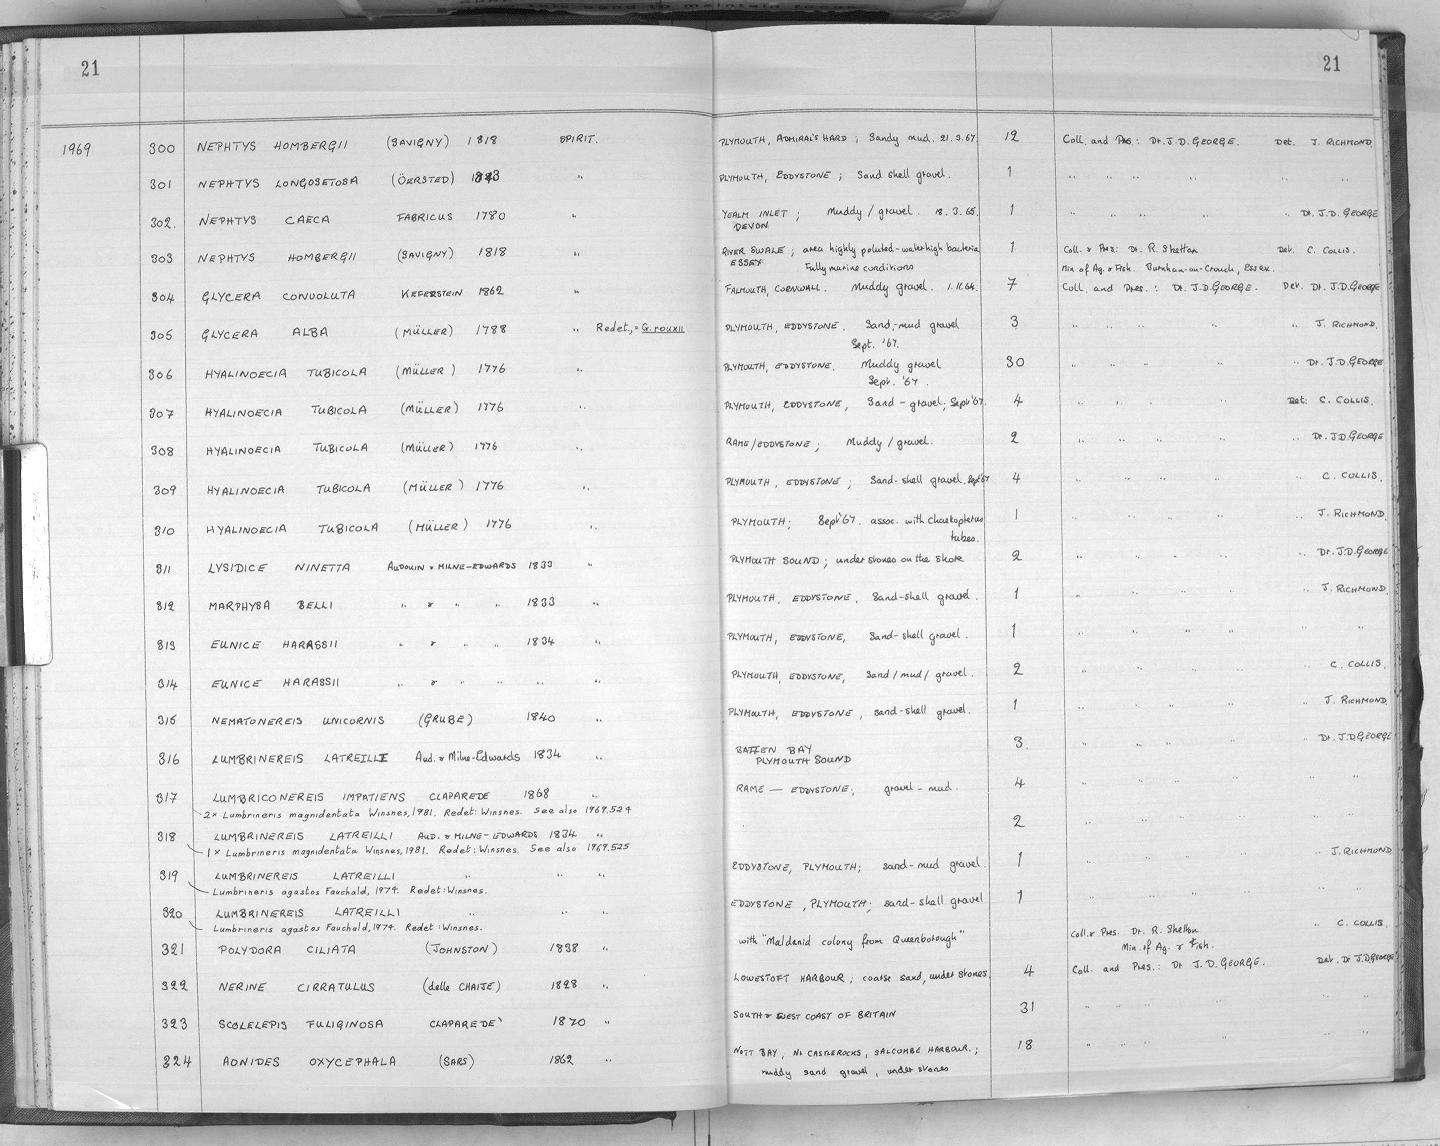 21
21
1969 300 NEPHTYS HOMBERGII (SAVIGNY) 1818 SPIRIT. PLYMOUTH, ADMIRAL'S HARD; Sandy mud. 21.3.67 12 Coll. and Pres: Dr. J.D. GEORGE. Det. J. RICHMOND.
301 NEPHTYS LONGOSETOSA (ÖERSTED) 1843 " PLYMOUTH, EDDYSTONE; Sand shell gravel. 1 " " " " " "
302. NEPHTYS CAECA FABRICUS 1780 " YEALM INLET; Muddy / gravel. 18.3.65. 1 " " " " " Dr. J.D. GEORGE
DEVON
303 NEPHTYS HOMBERGII (SAVIGNY) 1818 " RIVER SWALE; area highly poluted-water high bacteria 1 Coll. & Pres: Dr. R. Shelton Det. C. COLLIS.
ESSEX Fully marine conditions Min of Ag. & Fish. Burnham-on-Crouch, Essex.
304 GLYCERA CONVOLUTA KEFERSTEIN 1862 " FALMOUTH, CORNWALL. Muddy gravel. 1.11.64. 7 Coll. and Pres.: Dr. J.D. GEORGE. Det. Dr. J.D. GEORGE
305 GLYCERA ALBA (MÜLLER) 1788 " Redet, = G. rouxii PLYMOUTH, EDDYSTONE. Sand,-mud gravel 3 " " " " " J. RICHMOND.
Sept. '67.
306 HYALINOECIA TUBICOLA (MÜLLER) 1776 " PLYMOUTH, EDDYSTONE. Muddy gravel 30 " " " " " Dr. J.D. GEORGE
Sept. '67.
307 HYALINOECIA TUBICOLA (MÜLLER) 1776 " PLYMOUTH, EDDYSTONE, Sand - gravel; Sept '67. 4 " " " " Det: C. COLLIS.
308 HYALINOECIA TUBICOLA (MÜLLER) 1776 " RAME/EDDYSTONE; Muddy / gravel. 2 " " " " " Dr. J.D. GEORGE
309 HYALINOECIA TUBICOLA (MÜLLER) 1776 " PLYMOUTH, EDDYSTONE; Sand-shell gravel. Sept '67 4 " " " " " C. COLLIS.
310 HYALINOECIA TUBICOLA (MÜLLER) 1776 " PLYMOUTH; Sept '67. assoc. with chaetopterus 1 " " " " " J. RICHMOND
tubes.
311 LYSIDICE NINETTA AUDOUIN & MILNE-EDWARDS 1833 " PLYMOUTH SOUND; under stones on the shore 2 " " " " " Dr. J.D. GEORGE
312 MARPHYSA BELLI " & " " 1833 " PLYMOUTH, EDDYSTONE, Sand-shell gravel. 1 " " " " " J. RICHMOND
313 EUNICE HARASSII " & " " 1834 " PLYMOUTH, EDDYSTONE, Sand-shell gravel. 1 " " " " " "
314 EUNICE HARASSII " & " " " " PLYMOUTH, EDDYSTONE, Sand / mud / gravel. 2 " " " " " C. COLLIS.
315 NEMATONEREIS UNICORNIS (GRUBE) 1840 " PLYMOUTH, EDDYSTONE, sand-shell gravel. 1 " " " " " J. RICHMOND.
316 LUMBRINEREIS LATREILLI Aud. & Milne-Edwards 1834 " BATTEN BAY 3. " " " " " Dr. J.D. GEORGE
PLYMOUTH SOUND
317 LUMBRICONEREIS IMPATIENS CLAPAREDE 1868 " RAME — EDDYSTONE; gravel-mud. 4 " " " " " "
2× Lumbrineris magnidentata Winsnes, 1981. Redet: Winsnes. See also 1969.524
318 LUMBRINEREIS LATREILLI AUD. & MILNE-EDWARDS 1834 " 2 " " " " " "
1× Lumbrineris magnidentata Winsnes, 1981. Redet: Winsnes. See also 1969.525
319 LUMBRINEREIS LATREILLI " " " EDDYSTONE, PLYMOUTH; sand-mud gravel. 1 " " " " " J. RICHMOND
Lumbrineris agastos Fauchald, 1974. Redet: Winsnes.
320 LUMBRINEREIS LATREILLI " " " EDDYSTONE, PLYMOUTH; sand-shell gravel 1 " " " " " "
Lumbrineris agastos Fauchald, 1974. Redet: Winsnes.
321 POLYDORA CILIATA (JOHNSTON) 1838 " with "Maldanid colony from Queenborough" Coll. & Pres. Dr. R. Shelton " C. COLLIS.
Min. of Ag. & Fish.
322 NERINE CIRRATULUS (delle CHAIJE) 1828 " LOWESTOFT HARBOUR; coarse sand, under stones. 4 Coll. and Pres.: Dr J.D. GEORGE. Det. Dr J.D. GEORGE
323 SCOLELEPIS FULIGINOSA CLAPAREDE` 1870 " SOUTH & WEST COAST OF BRITAIN 31 " " " " " "
324 AONIDES OXYCEPHALA (SARS) 1862 " NOTT BAY, Nr CASTLEROCKS, SALCOMBE HARBOUR.; 18 " " " " " "
muddy sand gravel, under stones